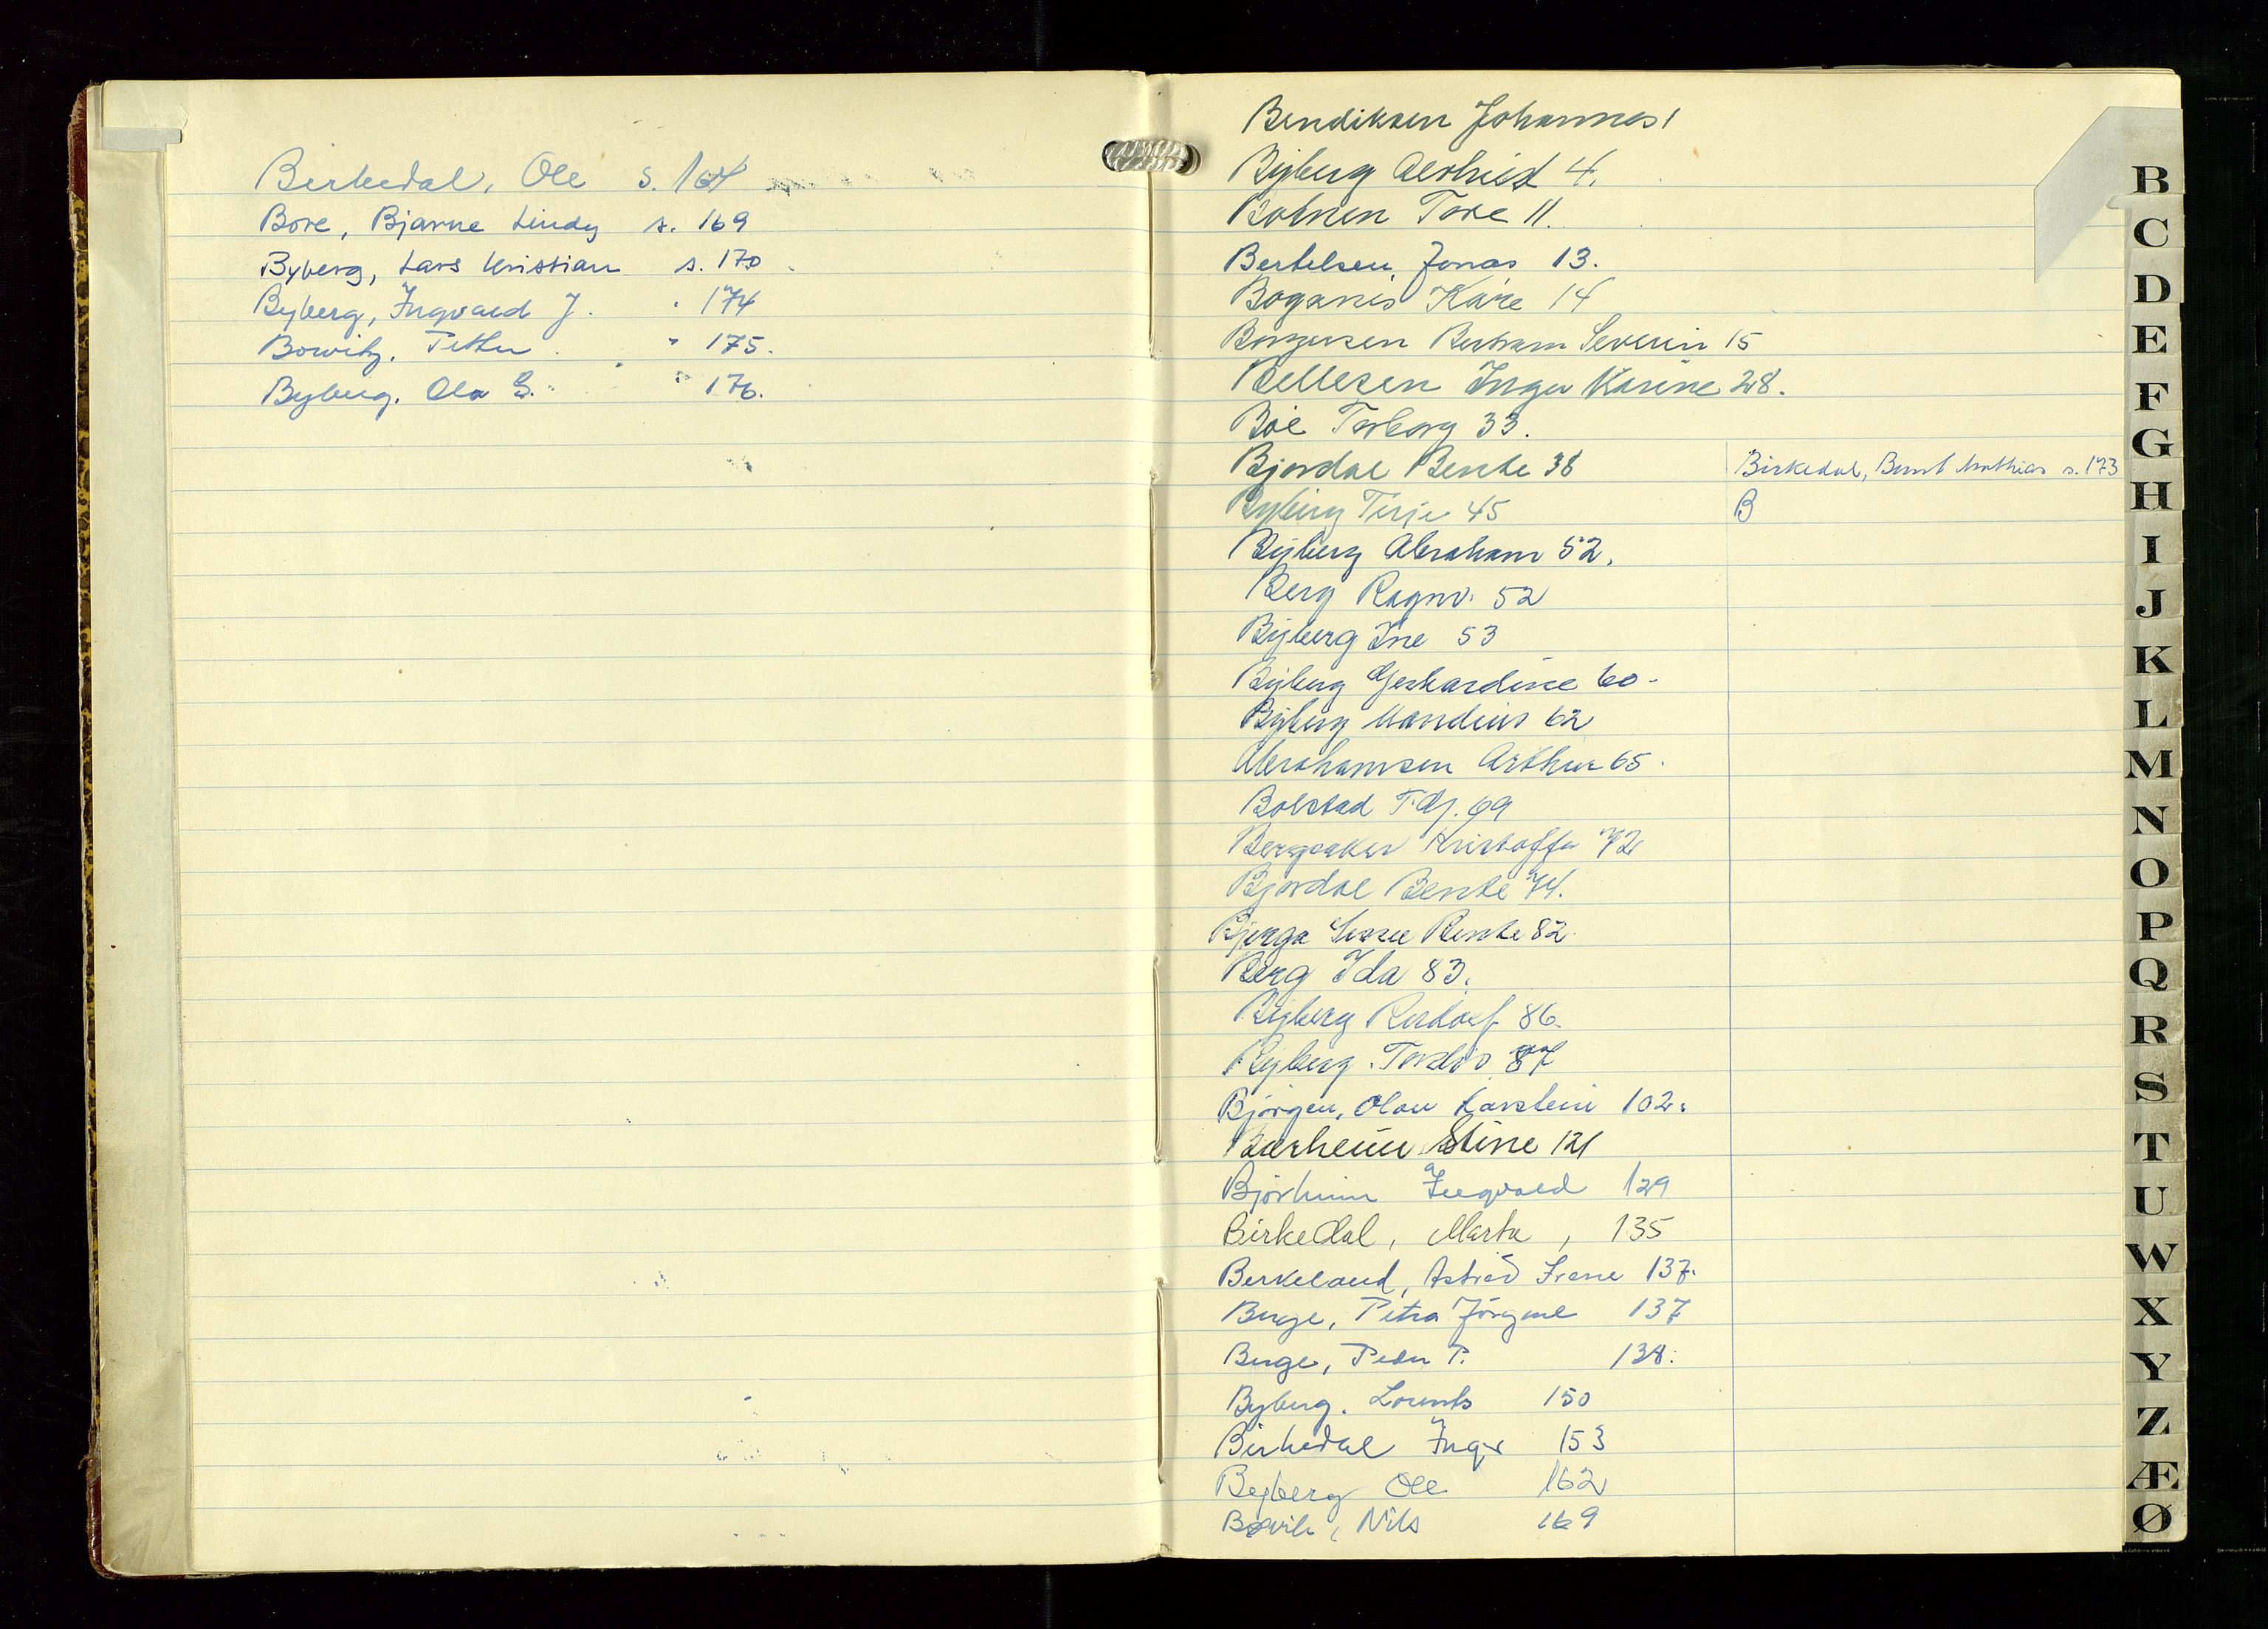 Birkedal, Ole s. 164
Bore, Bjarne Lindy s. 169
Byberg, Lars Kristian s. 170
Byberg, Ingvald J. " 174
Bowitz, Petter " 175.
Byberg, Ola G. " 176.
Bendiksen Johannes 1
Byberg Alvhild 4.
Tore 11.
Bertelsen Jonas 13.
Boganes Kåre 14
Borgersen Bertram Severin 15
Bellesen Inger Karine 28.
Bøe Torborg 33.
Bjordal Bente 38
Byberg Terje 45
Byberg Abraham 52.
Berg Ragnv. 52
Byberg Ine 53
Byberg Gerhardine 60.
Byberg Mandius 62
Abrahamsen Arthur 65.
Bolstad T. G. 69
Bergsaker Kristoffer 72
Bjordal Bente 74.
Bjerga Bente 82.
Berg Ida 83.
Byberg Rudolf 86.
Byberg. Torleiv 87
Bjørgen, Olav Karstein 102.
Barheim Stine 121
Bjørheim Ingvald 129
Birkedal, Marta, 135
Berkeland, Astrid Irene 137.
Berge, Petra Jørgine 137
Berge, Peder P. 138.
Byberg. Lorents 150
Birkedal Inger 153
Byberg Ole 162
Nils 169
Birkedal, Bernt Mathias s. 173
B
B
C
D
E
F
G
H
I
J
K
L
M
N
O
P
Q
R
S
T
U
W
X
Y
Z
Æ
Ø